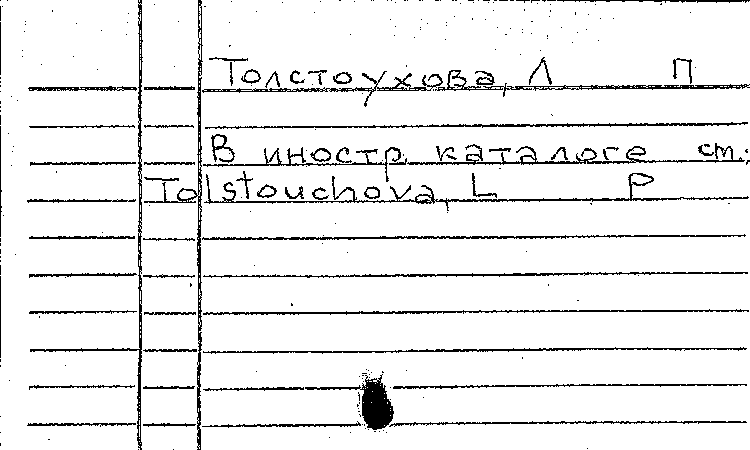 Толстоухова, Л П
В иностр. каталоге ст.:
Tolstouchova, L P